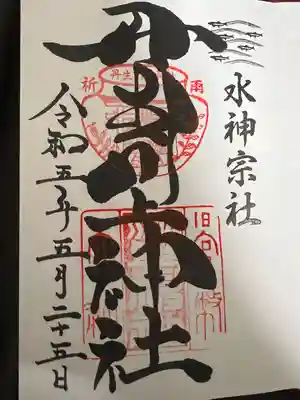 水神宗社
丹生川上神社
令和五年五月二十五日
丹生
祈雨